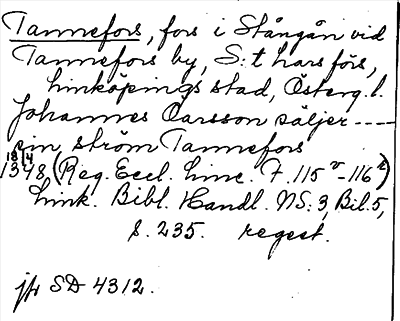 Tannefors, fors i Stångån vid
Tannefors by, S:t Lars förs,
Linköpings stad, Österg. l.
Johannes Carsson säljer ----
sin ström Tannefors
18/4
1348 (Reg. Eccl. Linc. F. 115v-116r)
Link. Bibl. Handl. NS: 3, Bil. 5,
s. 235. regest.
jfr SD 4312.